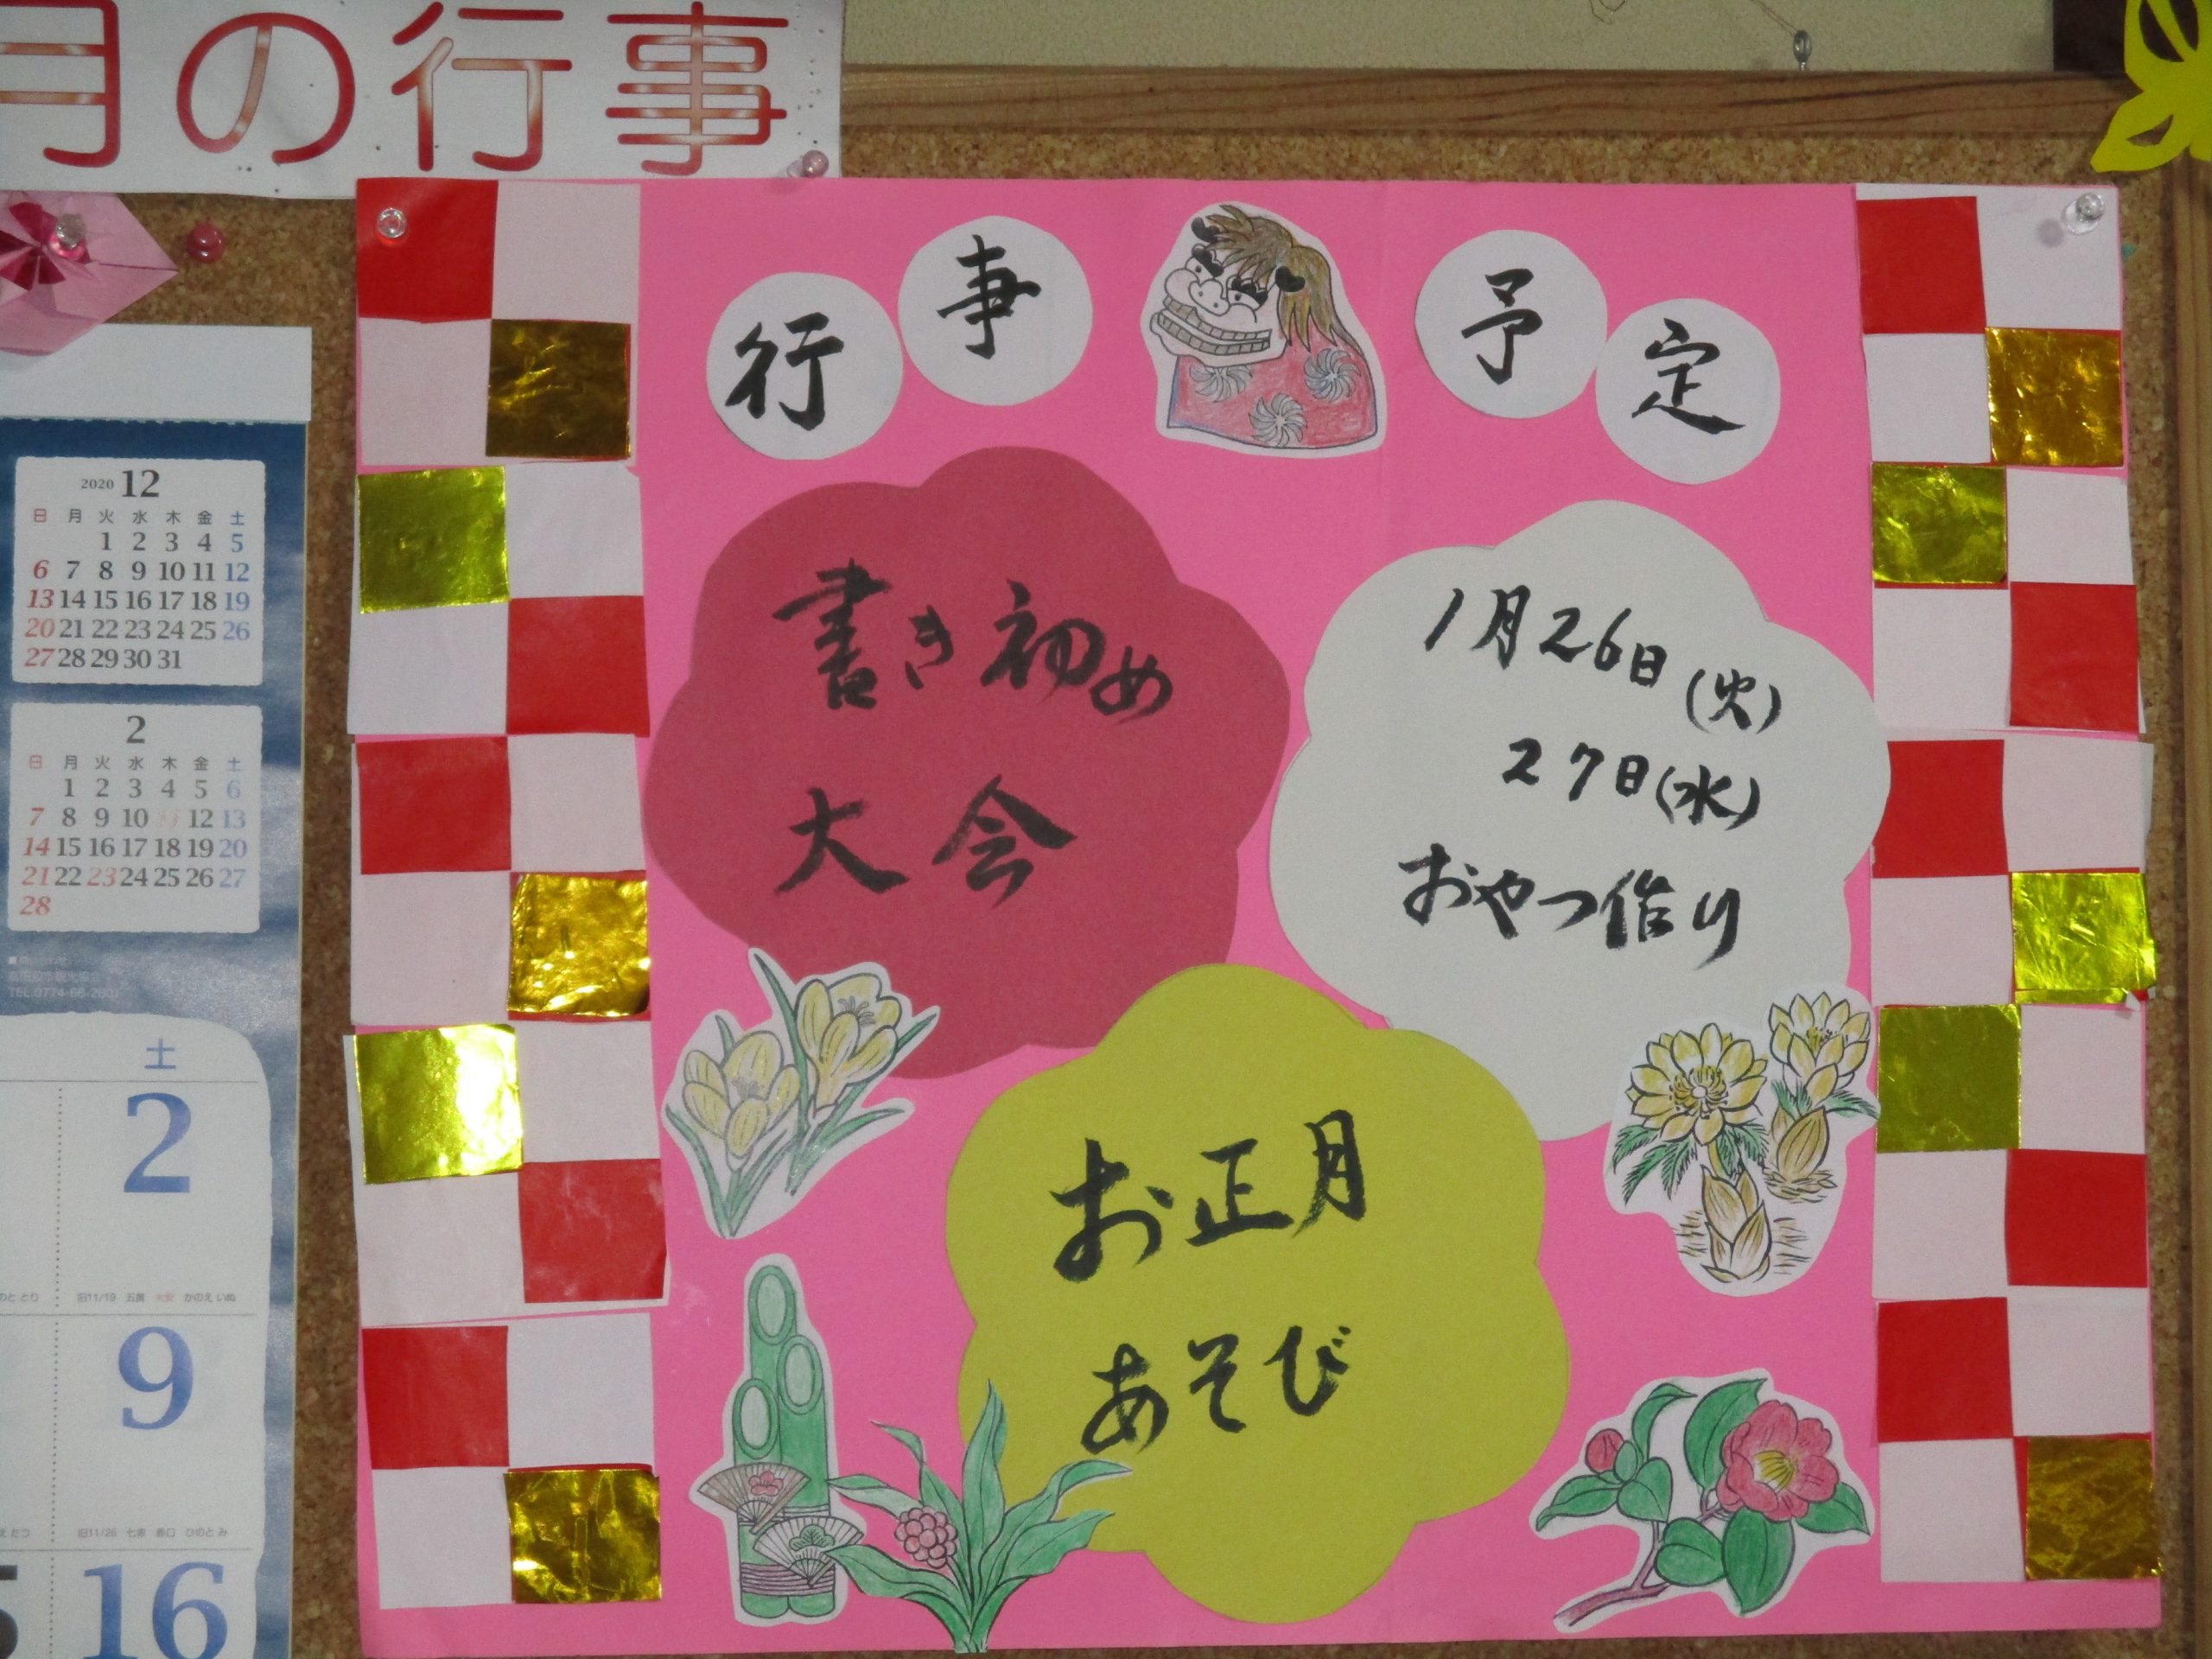 月の行事
行事 予定
書き初め
大会
1月26日(火)
27日(水)
おやつ作り
お正月
あそび
2020 12
日 月 火 水 木 金 土
1 2 3 4 5
6 7 8 9 10 11 12
13 14 15 16 17 18 19
20 21 22 23 24 25 26
27 28 29 30 31
2
日 月 火 水 木 金 土
1 2 3 4 5 6
7 8 9 10 11 12 13
14 15 16 17 18 19 20
21 22 23 24 25 26 27
28
土
2
旧11/19 五黄 かのえ いぬ
9
旧11/26 七赤 赤口 ひのと み
16